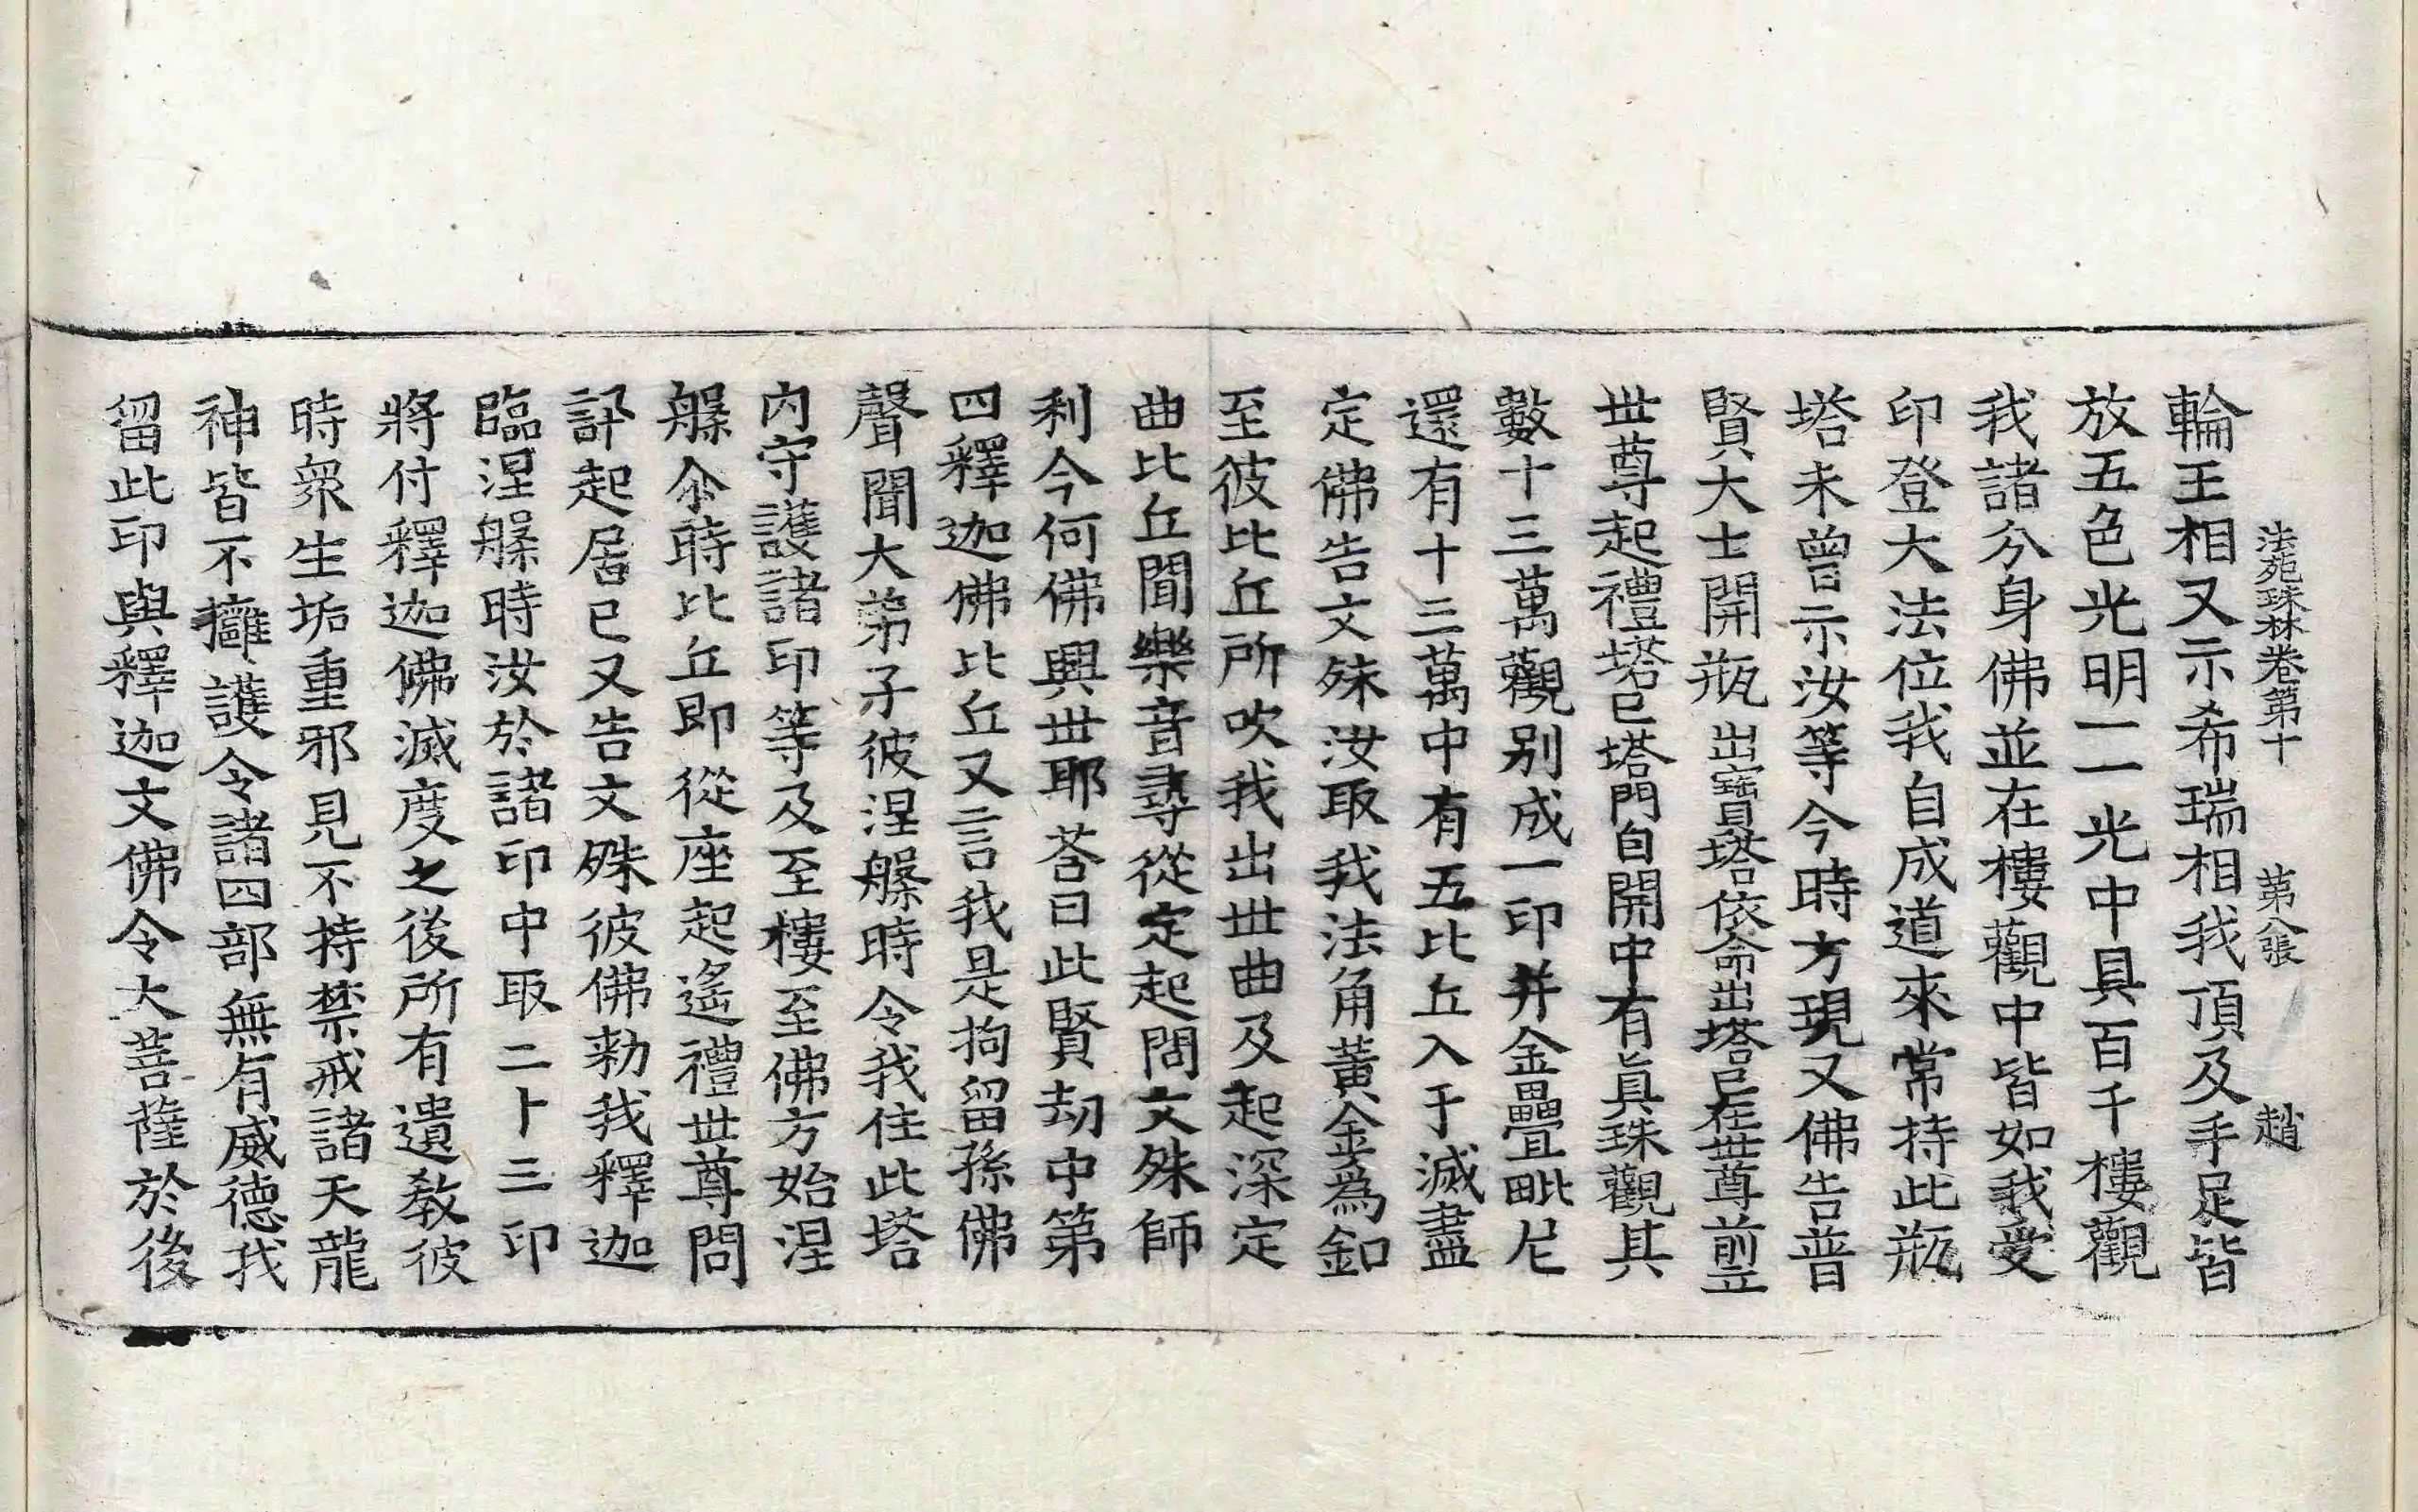 法苑珠林卷第十 第八張 趙
輪王相又示希瑞相我頂及手足皆
放五色光明一一光中具百千樓觀
我諸分身佛並在樓觀中皆如我受
印登大法位我自成道來常持此瓶
塔未曾示汝等今時方現又佛告普
賢大士開瓶出寶塔依命出塔已在世尊前立
世尊起禮塔已塔門自開中有真珠觀其
數十三萬觀别成一印并金疊毗尼
還有十三萬中有五比丘入于滅盡
定佛告文殊汝取我法角黃金為釦
至彼比丘所吹我出世曲及起深定
曲比丘聞樂音尋從定起問文殊師
利今何佛興世耶荅曰此賢劫中第
四釋迦佛比丘又言我是拘留孫佛
聲聞大弟子彼涅槃時令我住此塔
内守護諸印等及至樓至佛方始涅
槃尒時比丘即從座起遙禮世尊問
訊起居已又告文殊彼佛勑我釋迦
臨涅槃時汝於諸印中取二十三印
將付釋迦佛滅度之後所有遺教彼
時衆生垢重邪見不持禁戒諸天龍
神皆不擁護令諸四部無有威德我
留此印與釋迦文佛令大菩薩於後